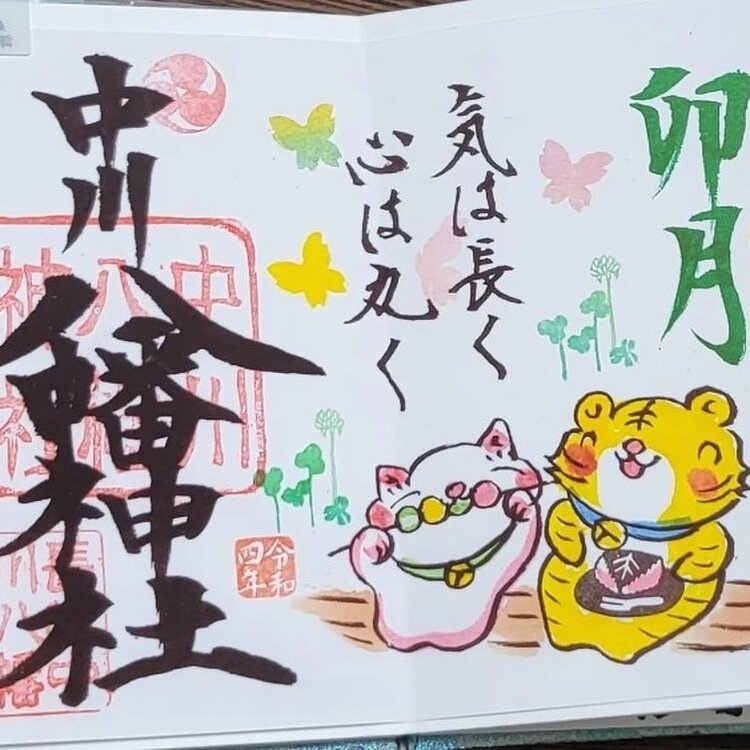 卯月
気は長く
心は丸く
令和
四年
中川
八幡神社
中川
八幡
神社